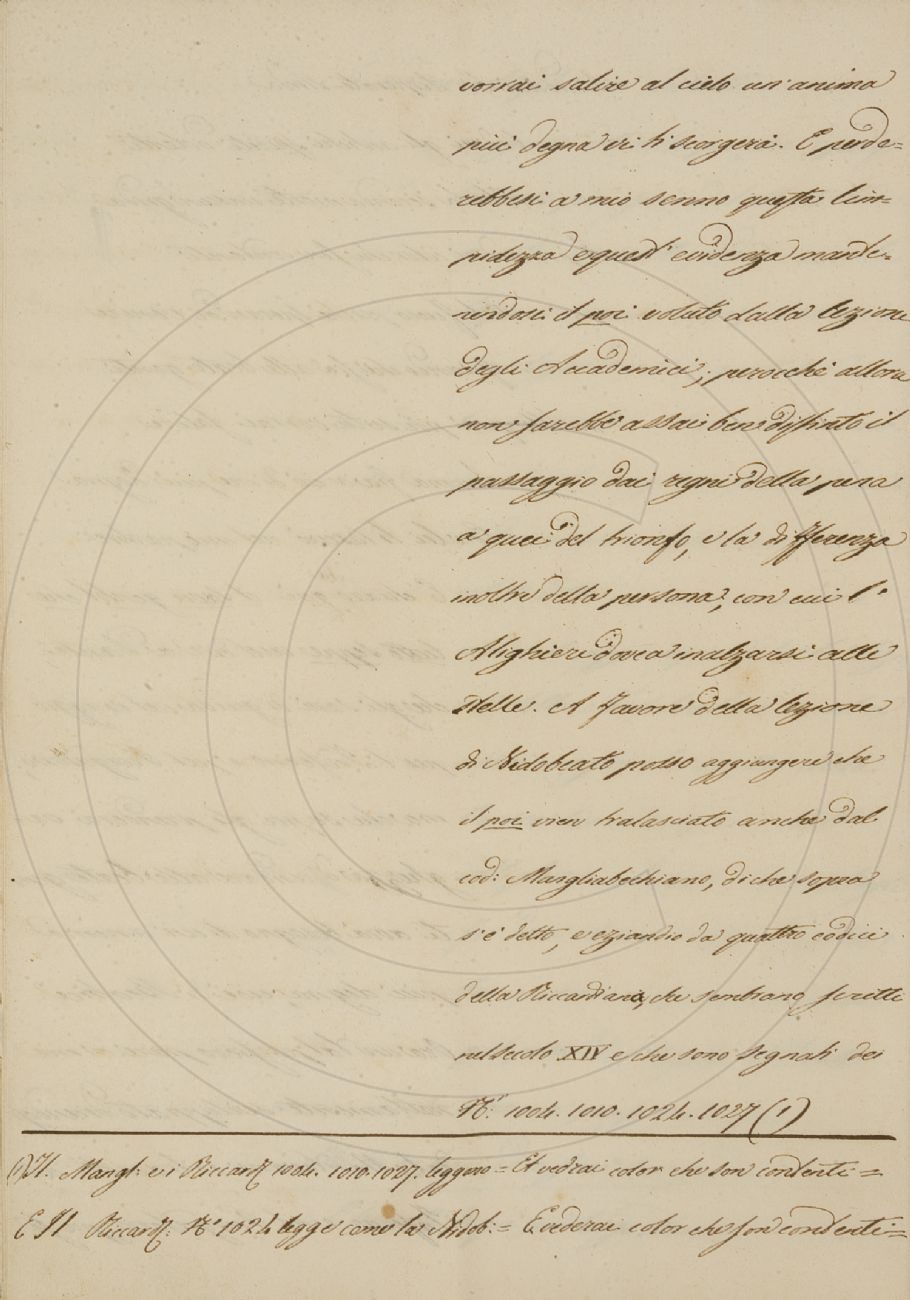 vorrai salire al cielo un'anima
più degna vi ti scorgerà. E perde=
rebbesi a mio senno questa lim=
pidezza e quest' evidenza mante=
nendosi il poi voluto dalla lezione
degli Accademici; perocchè allora
non sarebbe assai ben distinto il
passaggio dai regni della pena
a quei del trionfo, e la differenza
inoltre della persona, con cui l'
Alighieri dovea inalzarsi alle
stelle. A favore della lezione
di Nidobeato posso aggiungere che
il poi vien tralasciato anche dal
cod: Margliabechiano, di che sopra
s'è detto, e eziandio da quattro codici
della Riccardiana, che sembrano scritti
nel secolo XIV e che sono segnati dei
N.i 1004. 1010. 1024. 1027 (1)
(1) Il Mangl: e i Riccard: 1004. 1010. 1027. leggono = Et vedrai color che son contenti =
E Il Riccard: N.o 1024 legge come la Nidob: = E vederai color che son contenti =